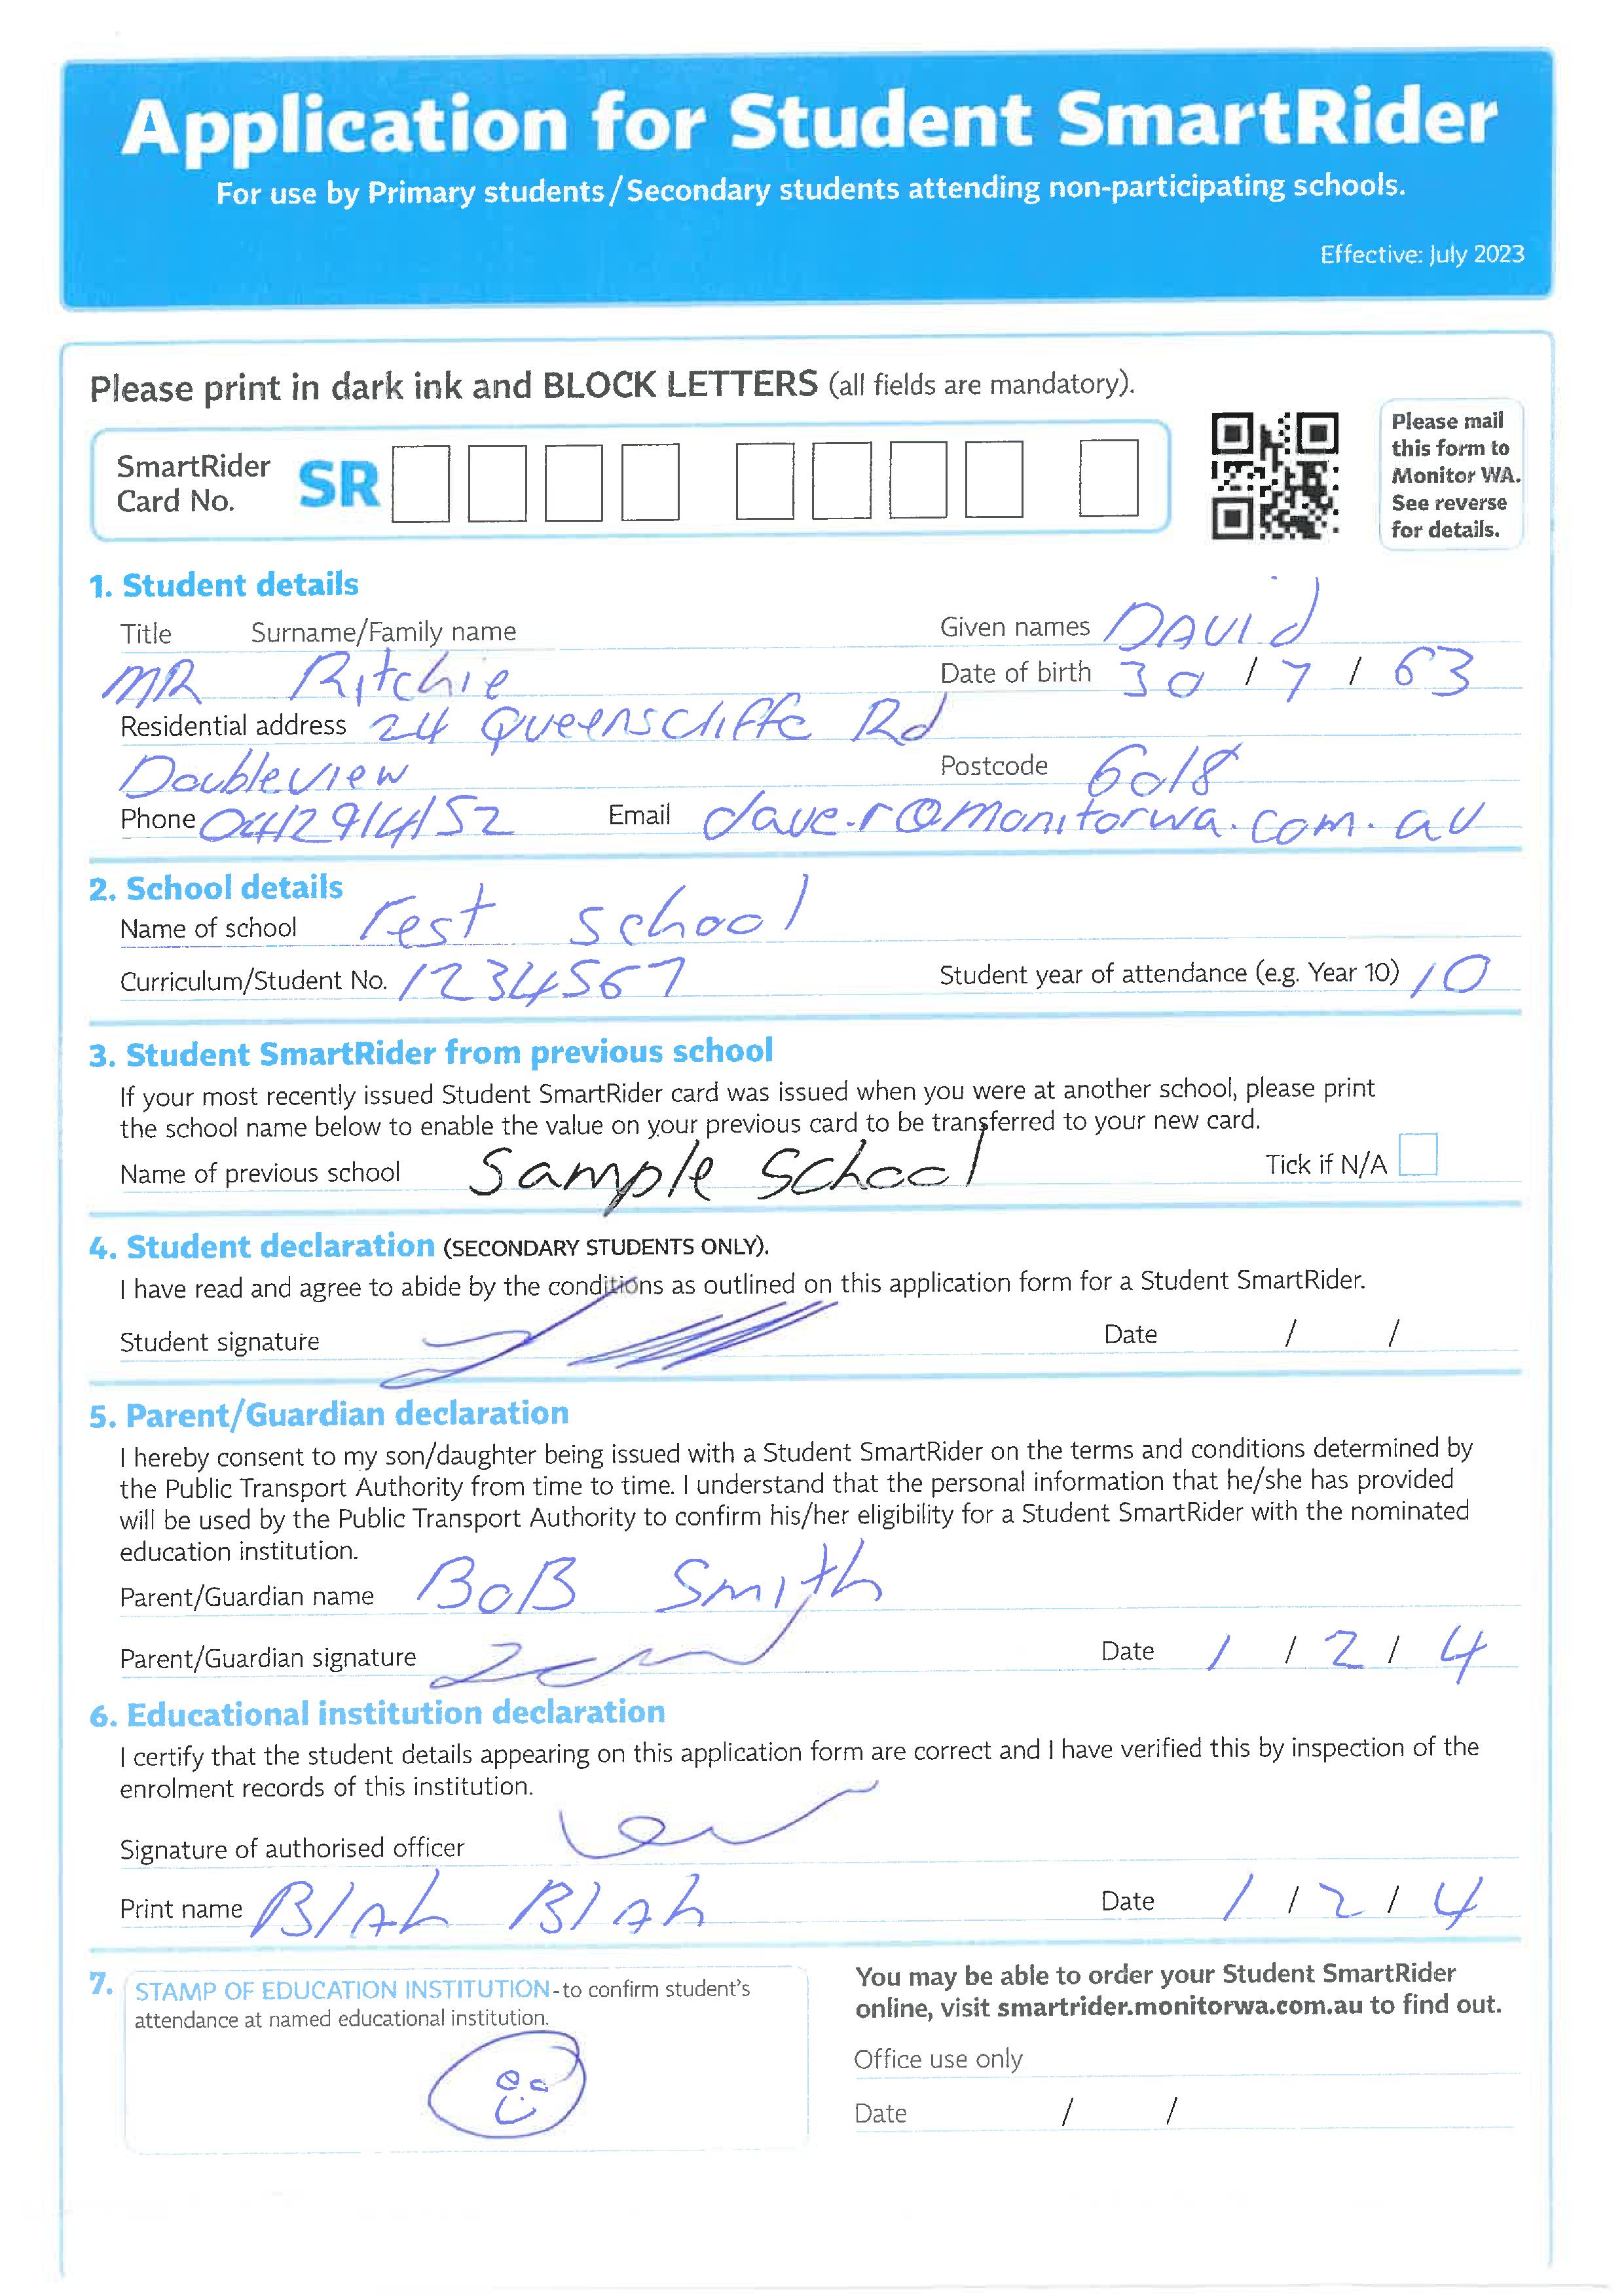 Application for Student SmartRider
For use by Primary students/Secondary students attending non-participating schools.
Effective: July 2023
Please print in dark ink and BLOCK LETTERS (all fields are mandatory).
SmartRider Card No. SR
Please mail this form to Monitor WA. See reverse for details.
1. Student details
Title Surname/Family name Given names DAVId
MR Ritchie Date of birth 30 / 7 / 63
Residential address 24 Queenscliffe Rd
Doubleview Postcode 6018
Phone 0412914152 Email dave.r@monitorwa.com.au
2. School details
Name of school Test school
Curriculum/Student No. 1234567 Student year of attendance (e.g. Year 10) 10
3. Student SmartRider from previous school
If your most recently issued Student SmartRider card was issued when you were at another school, please print
the school name below to enable the value on your previous card to be transferred to your new card.
Name of previous school Sample School Tick if N/A
4. Student declaration (SECONDARY STUDENTS ONLY).
I have read and agree to abide by the conditions as outlined on this application form for a Student SmartRider.
Student signature Date / /
5. Parent/Guardian declaration
I hereby consent to my son/daughter being issued with a Student SmartRider on the terms and conditions determined by
the Public Transport Authority from time to time. I understand that the personal information that he/she has provided
will be used by the Public Transport Authority to confirm his/her eligibility for a Student SmartRider with the nominated
education institution.
Parent/Guardian name BoB Smith
Parent/Guardian signature Date 1 / 2 / 4
6. Educational institution declaration
I certify that the student details appearing on this application form are correct and I have verified this by inspection of the
enrolment records of this institution.
Signature of authorised officer
Print name BlAh BlAh Date 1 / 2 / 4
7. STAMP OF EDUCATION INSTITUTION - to confirm student's
attendance at named educational institution.
You may be able to order your Student SmartRider
online, visit smartrider.monitorwa.com.au to find out.
Office use only
Date / /